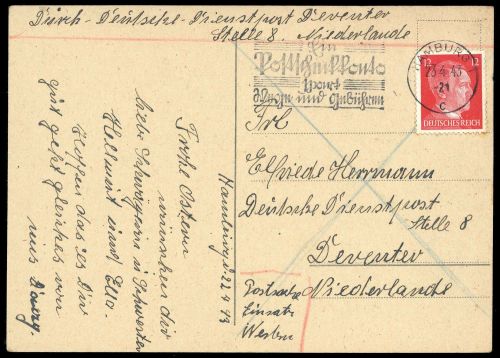 Durch-Deutsche-Dienstpost Deventer
Stelle 8. Niederlande
Ein
Postscheckkonto
spart
Wege und Gebühren
HAMBURG
23.4.43
-21
C
12 12
DEUTSCHES REICH
Frl
Elfriede Herrmann
Deutsche Dienstpost
Stelle 8
Deventer
Niederlande
Einsatz
Westen
Hamburg d 22 4 43
Frohe Ostern
wünschen dir
liebe Schwägerin u Schwester
Hellmut und Elsa.
Hoffen das es Dir
gut geht gleiches von
uns